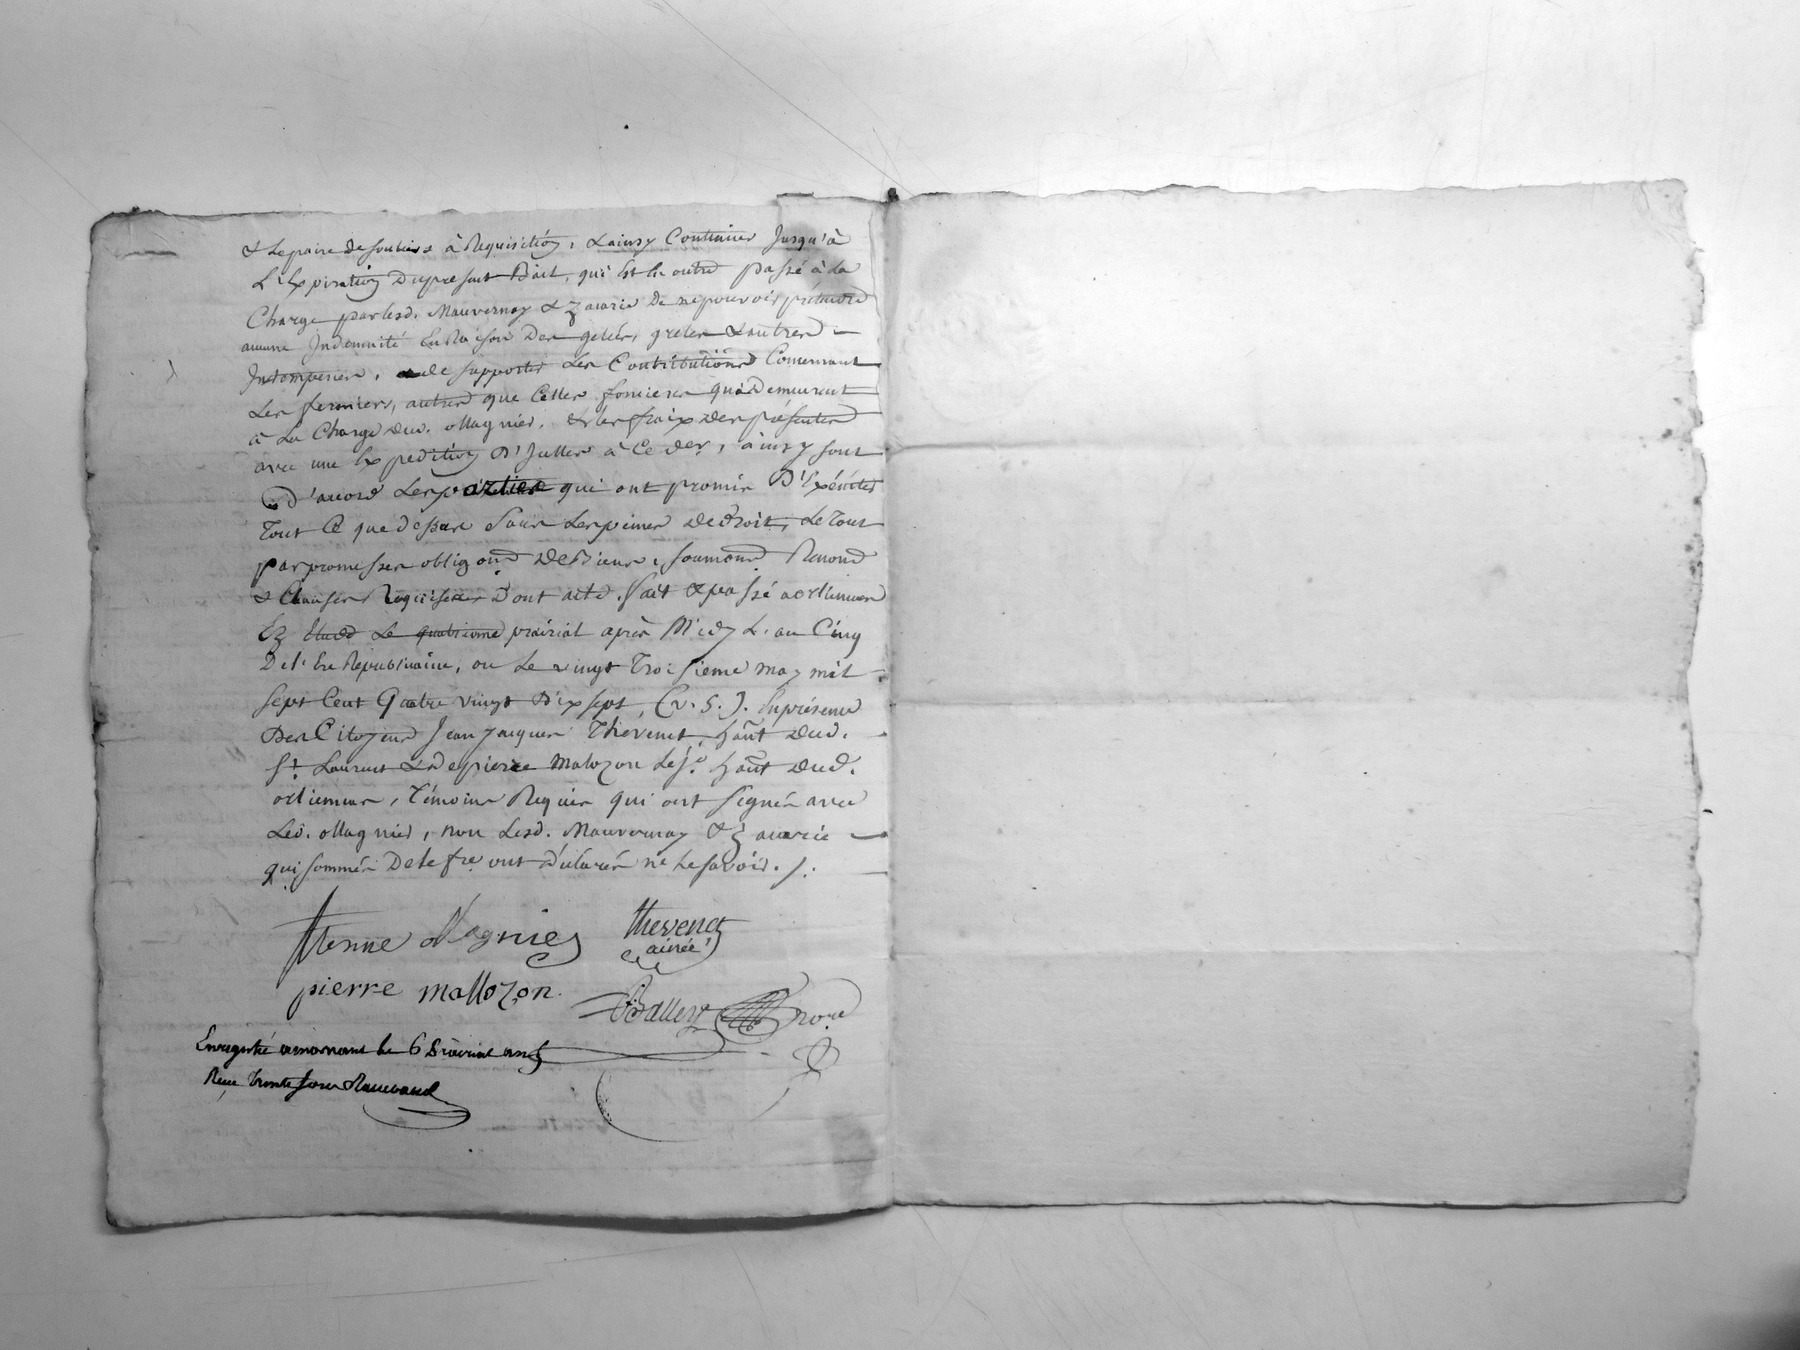 & le paire de souliers à Requisition, & ainsy Continuer Jusqu'à
L'Expiration Du present Bail, qui Est En outre passé à la
Charge par lesd. Mauvernay & Zacarie De ne pouvoir prétendre
aucune Indemnité En Raison Des gelées, greles & autres
Intemperies, de supporter Les Contributions Concernant
Les fermiers, autres que Celles foncieres qui Demeurent
à La Charge dud. ollagnier, & les fraix Des présentes
avec une Expedition D'Icelles à Ce der, ainsy sont
D'acord Les parties qui ont promis D'Exécuter
Tout Ce que dessus Sous Les peines De droit, Le Tout
par promesses obligons De Biens, soumons Renons
& Clauses Requises Dont acte. fait & passé a orlienas
Ez Etude Le quatrieme prairial après Midy L'an Cinq
De l'Ere Républicaine, ou Le vingt Troisieme may mil
Sept Cent Quatre vingt Dix sept, (v. S.). En présence
Des Citoyens Jean Jacques Thevenet, hant Dud.
St Laurent & De pierre Malozon le je hant Dud.
orlienas, Témoins Requis qui ont Signés avec
Led. ollagnier, non Lesd. Mauvernay & Zacarie
qui sommés De le fre ont Déclarés ne Le savoir ./.
Etienne ollagnier Thevenet
ainée
pierre mallozon
Balley nore
Enregistré a mornant le 6 Prairial an 5
Reçu Trente sous